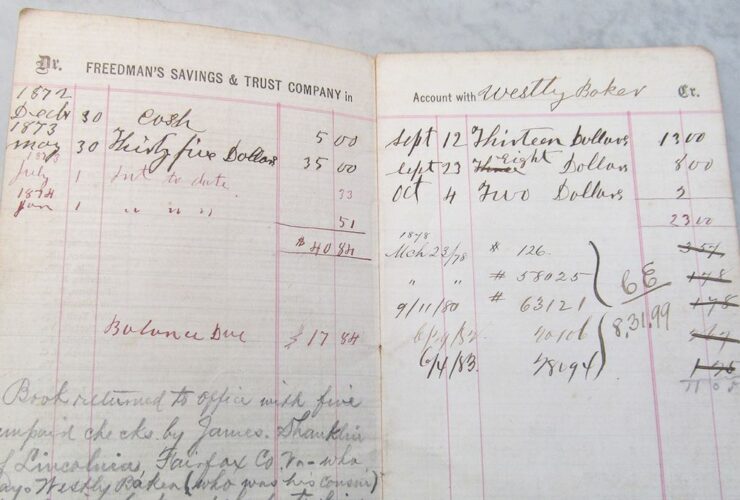 Dr. FREEDMAN'S SAVINGS & TRUST COMPANY in
1872
Decbr 30 Cash 5 00
1873
May 30 Thirty five Dollars 35 00
1873
July 1 Int to date 33
1874
Jan 1 " " " " 51
$ 40 84
Balance Due $ 17 84
Book returned to office with five
unpaid checks by James Shanklin
of Lincolnia, Fairfax Co. Va - who
says Westly Baker (who was his cousin)
Account with Westly Baker Cr.
Sept 12 Thirteen Dollars 13 00
Sept 23 Three Eight Dollars 8 00
Oct 4 Two Dollars 2
23 00
1878
Mch 23/78 # 126. 3 57
" " # 58025 1 78
9/11/80 # 63121 1 78
6E
8.31.99
40106
6/4/83. 48194